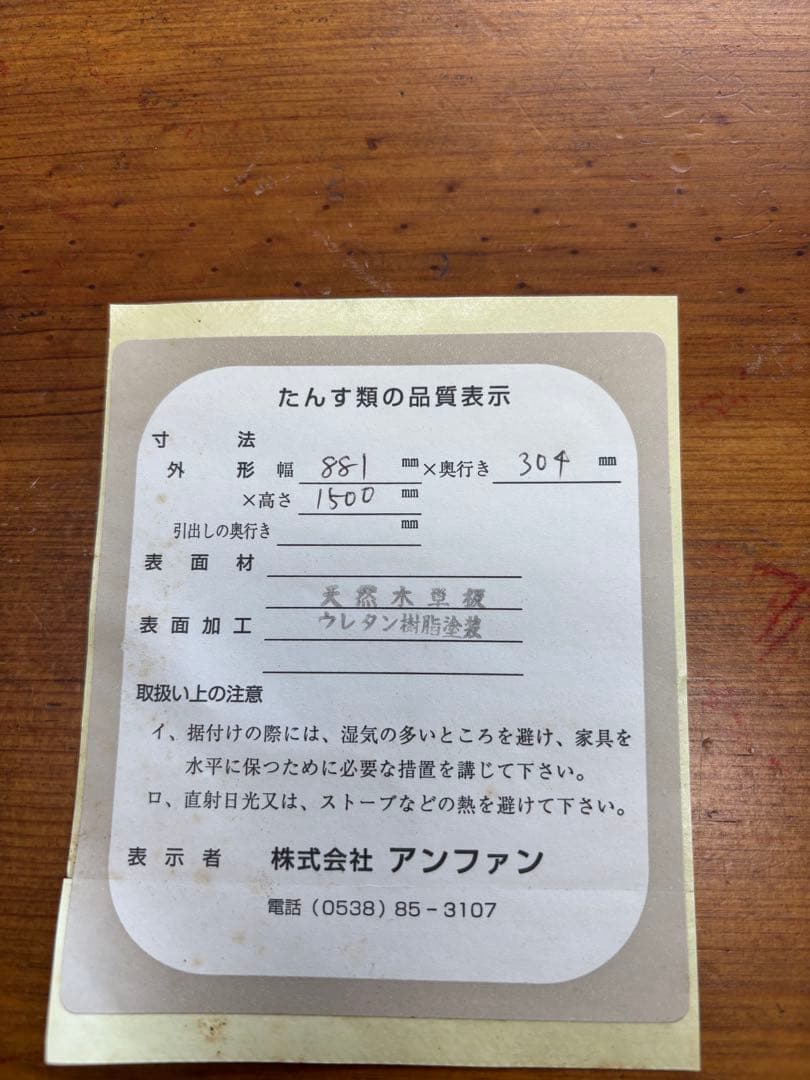 たんす類の品質表示
寸法
外形 幅 881 mm ×奥行き 304 mm
×高さ 1500 mm
引出しの奥行き mm
表面材
天然木単板
表面加工 ウレタン樹脂塗装
取扱い上の注意
イ、据付けの際には、湿気の多いところを避け、家具を
水平に保つために必要な措置を講じて下さい。
ロ、直射日光又は、ストーブなどの熱を避けて下さい。
表示者 株式会社 アンファン
電話(0538)85-3107